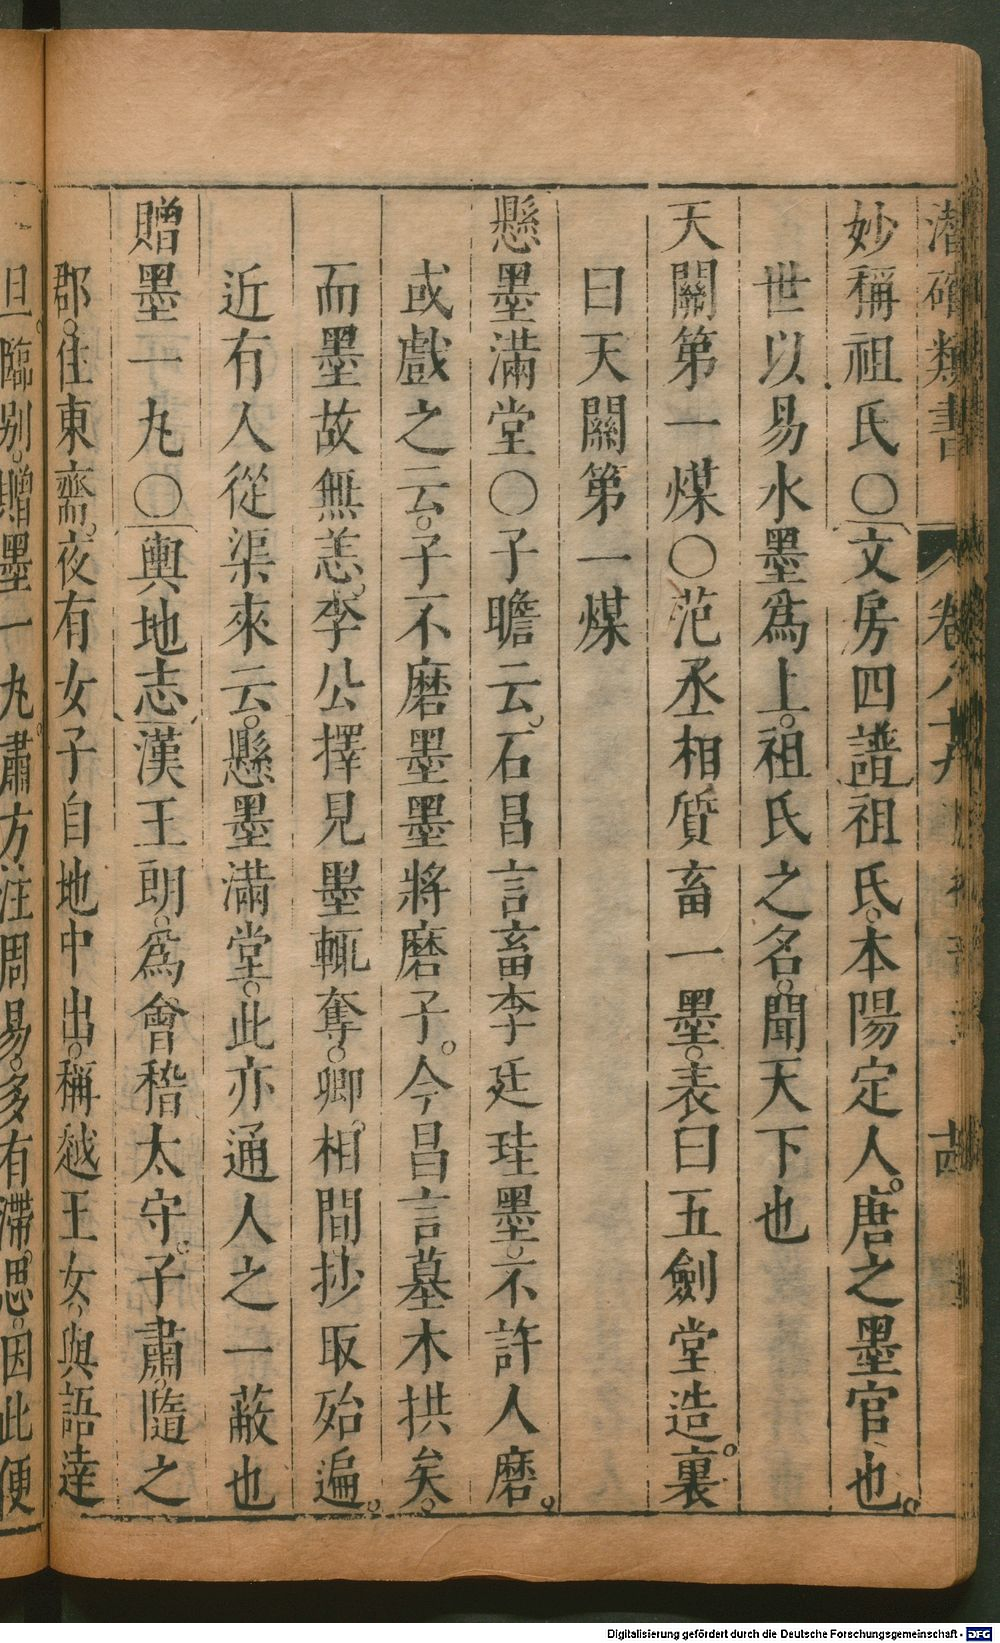 潛確類書 卷八十九 墨
妙稱祖氏〇文房四譜祖氏。本陽定人。唐之墨官也。
世以易水墨爲上。祖氏之名。聞天下也
天關第一煤〇范丞相質畜一墨。表曰五劍堂造。裏
曰天關第一煤
懸墨滿堂〇子瞻云。石昌言畜李廷珪墨。不許人磨。
或戲之云。子不磨墨墨將磨子。今昌言墓木拱矣。
而墨故無恙。李公擇見墨輒奪。卿。相間抄取殆遍。
近有人從渠來云。懸墨滿堂。此亦通人之一蔽也
贈墨一丸〇輿地志漢王朗。爲會稽太守。子肅。隨之
郡。住東齋。夜有女子自地中出。稱越王女。與語達
旦。臨别。贈墨一丸。肅方注周易。多有滯思。因此便
Digitalisierung gefördert durch die Deutsche Forschungsgemeinschaft - DFG